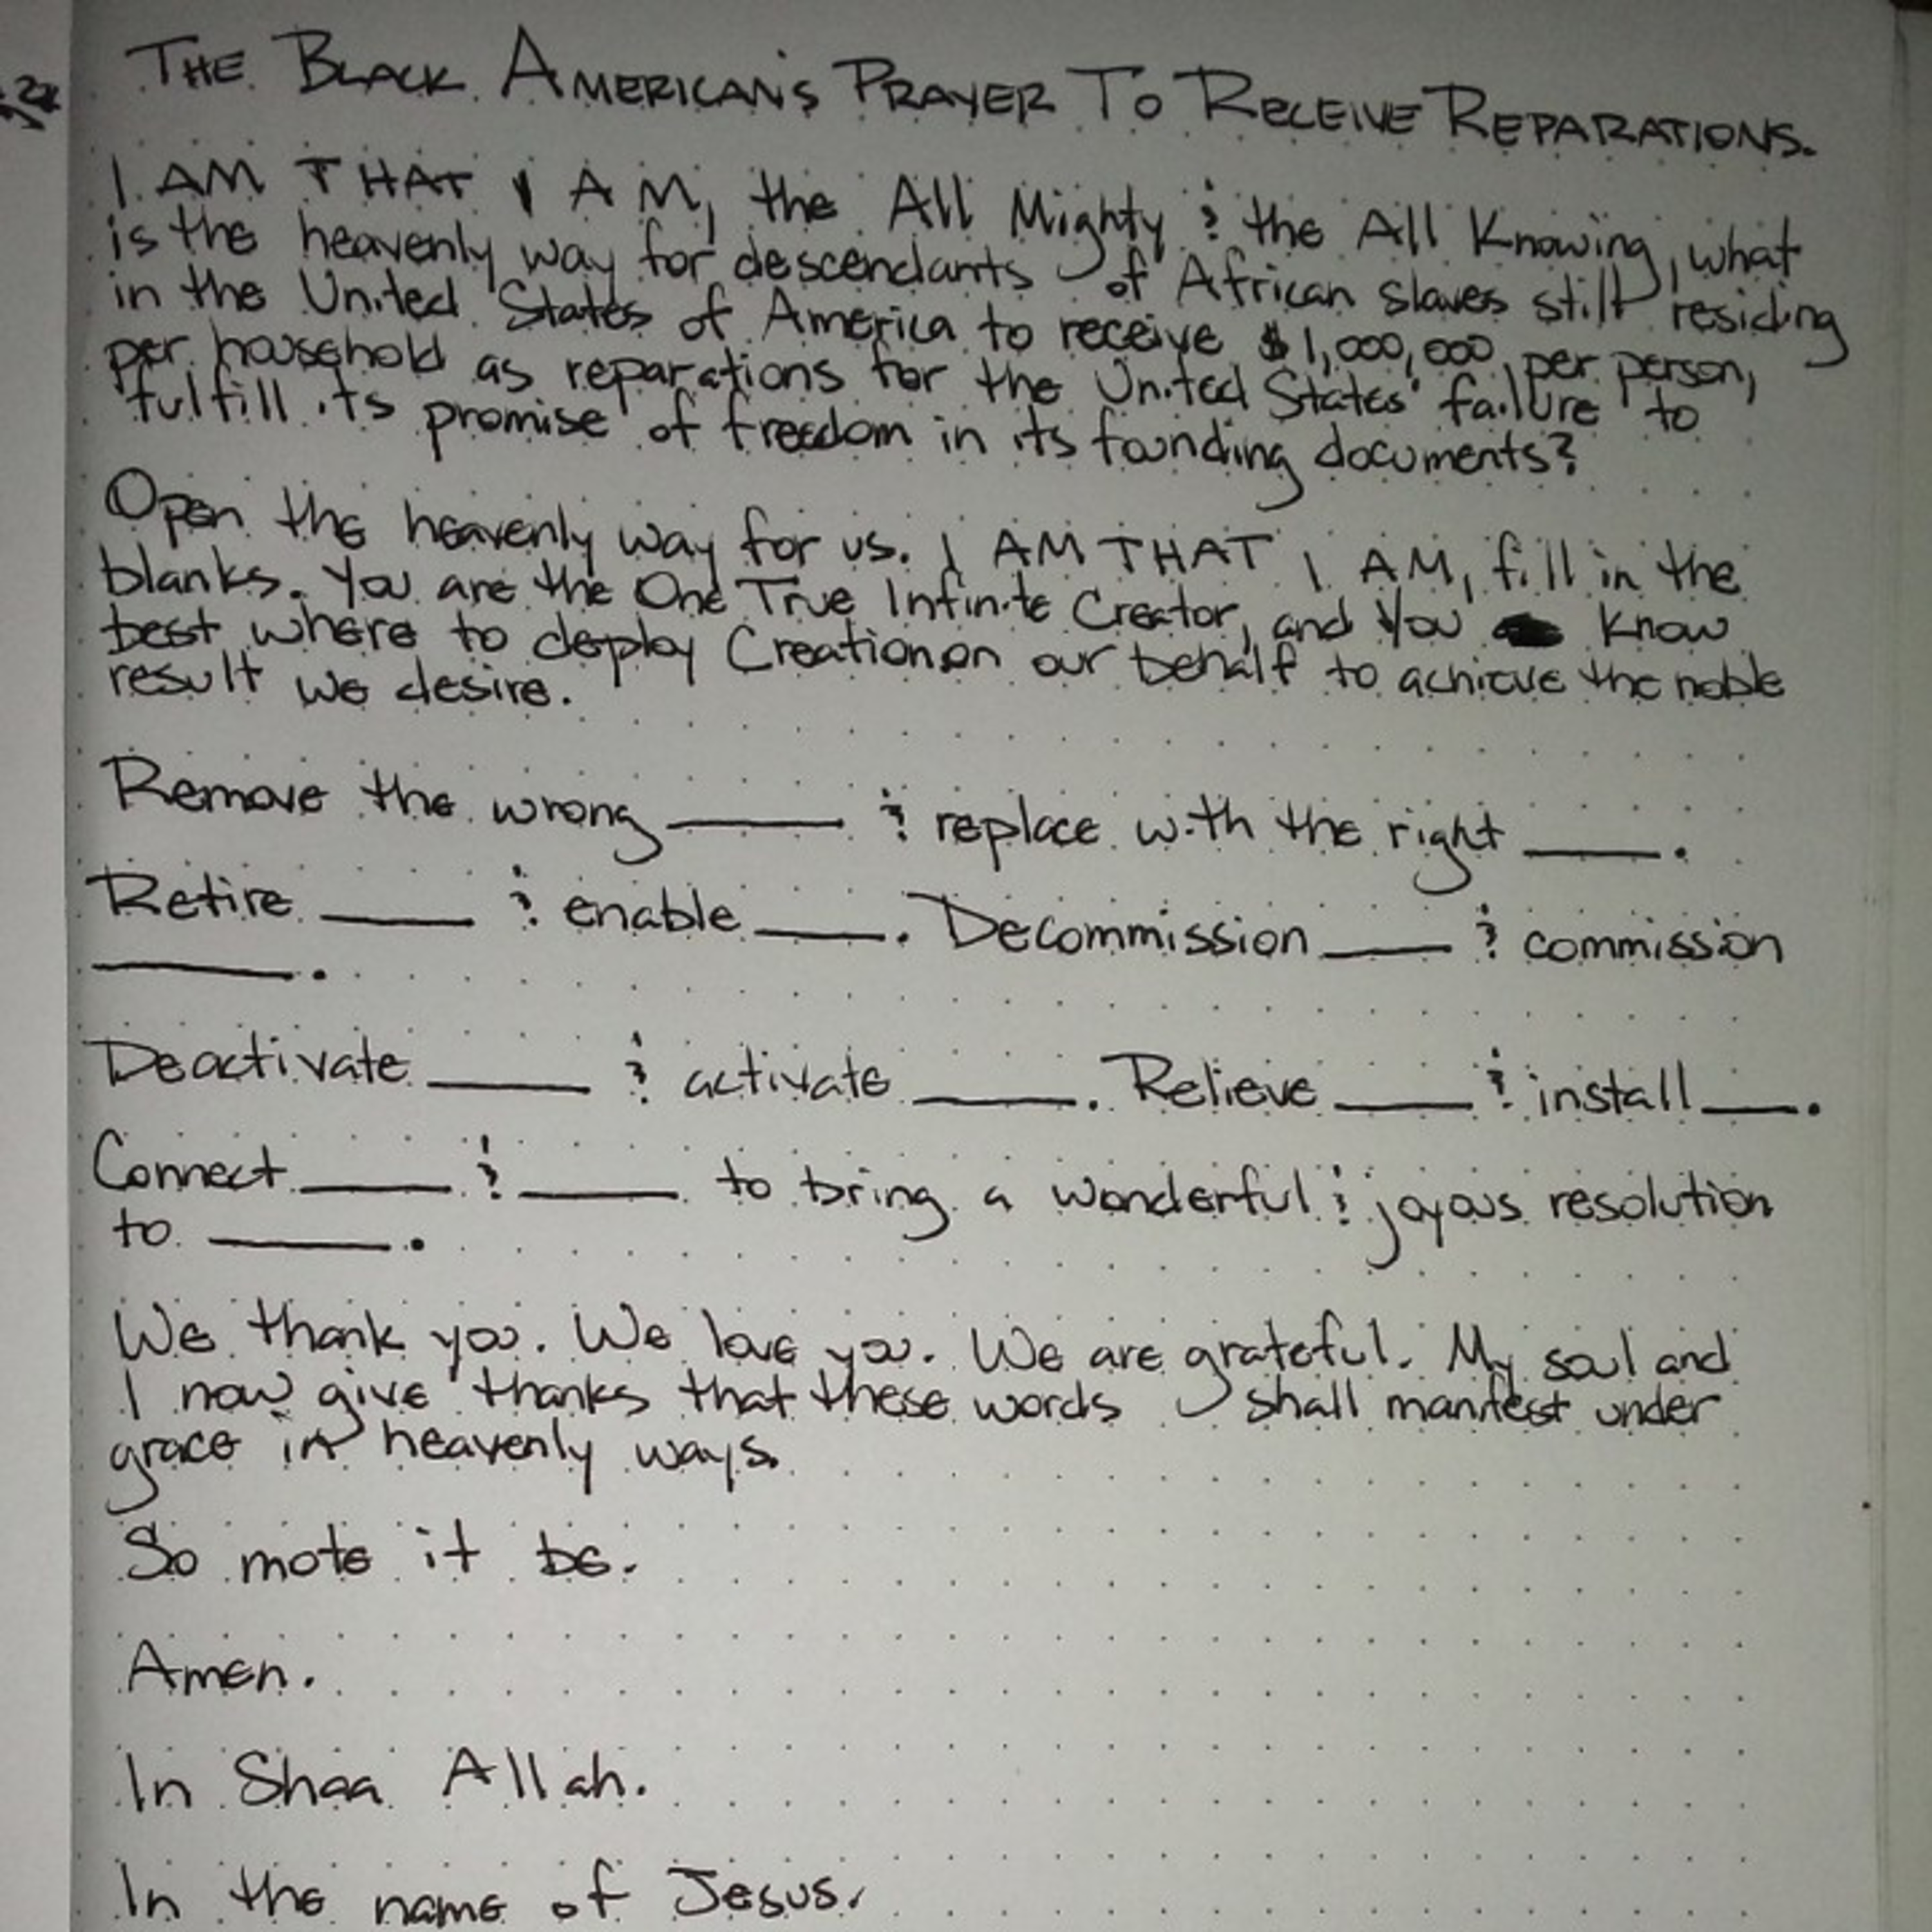 THE BLACK AMERICAN'S PRAYER TO RECEIVE REPARATIONS.
I AM THAT I AM, the All Mighty & the All Knowing, what
is the heavenly way for descendants of African slaves still residing
in the United States of America to receive $1,000,000 per person,
per household as reparations for the United States' failure to
fulfill its promise of freedom in its founding documents?
Open the heavenly way for us. I AM THAT I AM, fill in the
blanks. You are the One True Infinite Creator, and You know
best where to deploy Creation on our behalf to achieve the noble
result we desire.
Remove the wrong _____ & replace with the right _____.
Retire _____ & enable _____. Decommission _____ & commission
_____.
Deactivate _____ & activate _____. Relieve _____ & install _____.
Connect _____ & _____ to bring a wonderful & joyous resolution
to _____.
We thank you. We love you. We are grateful. My soul and
I now give thanks that these words shall manifest under
grace in heavenly ways.
So mote it be.
Amen.
In Shaa Allah.
In the name of Jesus.